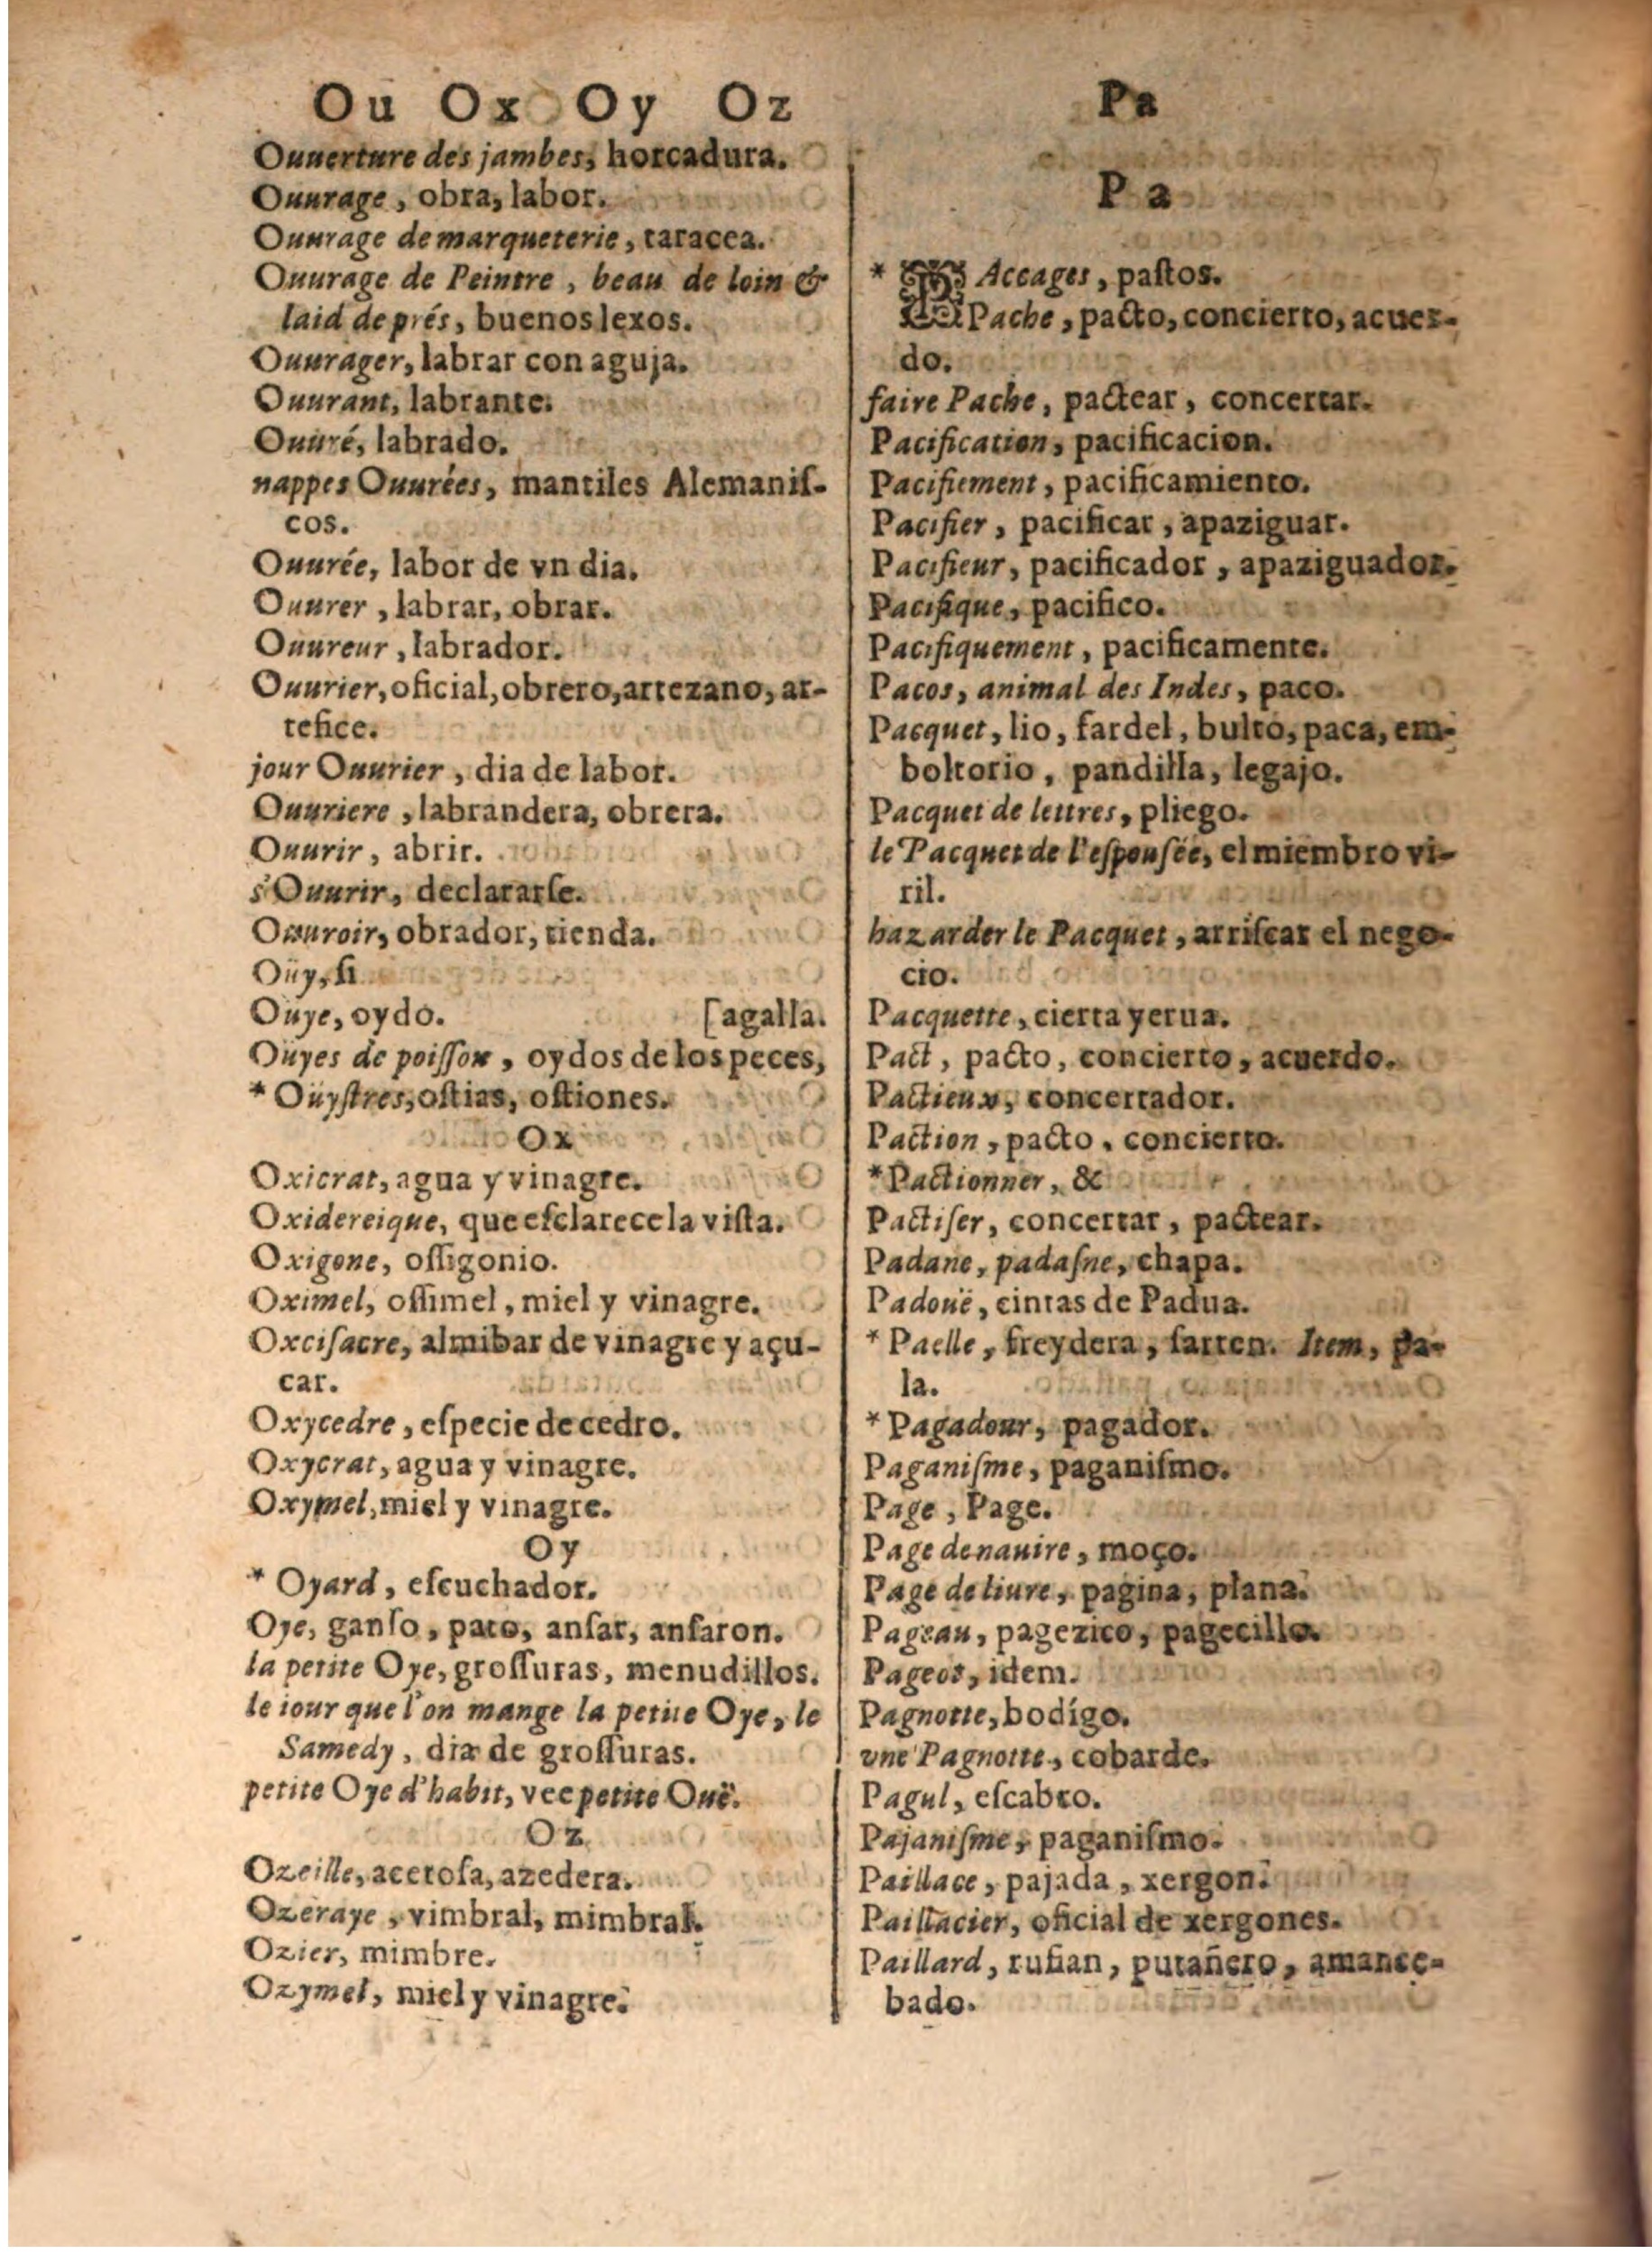 Ou Ox Oy Oz
Ouuerture des jambes, horcadura.
Ouurage, obra, labor.
Ouurage de marqueterie, taracea.
Ouurage de Peintre, beau de loin &
laid de prés, buenos lexos.
Ouurager, labrar con aguja.
Ouurant, labrante.
Ouuré, labrado.
nappes Ouurées, mantiles Alemaniſ-
cos.
Ouurée, labor de vn dia.
Ouurer, labrar, obrar.
Ouureur, labrador.
Ouurier, oficial, obrero, artezano, ar-
tefice.
jour Ouurier, dia de labor.
Ouuriere, labrandera, obrera.
Ouurir, abrir.
s'Ouurir, declararſe.
Ouuroir, obrador, tienda.
Oüy, ſi
Oüye, oydo. [agalla.
Oüyes de poiſſon, oydos de los peces,
* Oüyſtres, oſtias, oſtiones.
Ox
Oxicrat, agua y vinagre.
Oxidereique, que eſclarece la viſta.
Oxigone, oſſigonio.
Oximel, oſſimel, miel y vinagre.
Oxciſacre, almibar de vinagre y açu-
car.
Oxycedre, eſpecie de cedro.
Oxycrat, agua y vinagre.
Oxymel, miel y vinagre.
Oy
* Oyard, eſcuchador.
Oye, ganſo, pato, anſar, anſaron.
la petite Oye, groſſuras, menudillos.
le iour que l'on mange la petite Oye, le
Samedy, dia de groſſuras.
petite Oye d'habit, vee petite Ouë.
Oz
Ozeille, acetoſa, azedera.
Ozeraye, vimbral, mimbral.
Ozier, mimbre.
Ozymel, miel y vinagre.
Pa
Pa
* P Accages, paſtos.
Pache, pacto, concierto, acuer-
do.
faire Pache, pactear, concertar.
Pacification, pacificacion.
Pacifiement, pacificamiento.
Pacifier, pacificar, apaziguar.
Pacifieur, pacificador, apaziguador.
Pacifique, pacifico.
Pacifiquement, pacificamente.
Pacos, animal des Indes, paco.
Pacquet, lio, fardel, bulto, paca, em-
boltorio, pandilla, legajo.
Pacquet de lettres, pliego.
le Pacquet de l'eſpouſée, el miembro vi-
ril.
hazarder le Pacquet, arriſcar el nego-
cio.
Pacquette, cierta yerua.
Pact, pacto, concierto, acuerdo.
Pactieux, concertador.
Paction, pacto, concierto.
* Pactionner, &
Pactiſer, concertar, pactear.
Padane, padaſne, chapa.
Padouë, cintas de Padua.
* Paelle, freydera, ſarten. Item, pa-
la.
* Pagadour, pagador.
Paganiſme, paganiſmo.
Page, Page.
Page de nauire, moço.
Page de liure, pagina, plana.
Pageau, pagezico, pagecillo.
Pageot, idem.
Pagnotte, bodigo.
vne Pagnotte, cobarde.
Pagul, eſcabro.
Pajaniſme, paganiſmo.
Paillace, pajada, xergon.
Paillacier, oficial de xergones.
Paillard, rufian, putañero, amance-
bado.